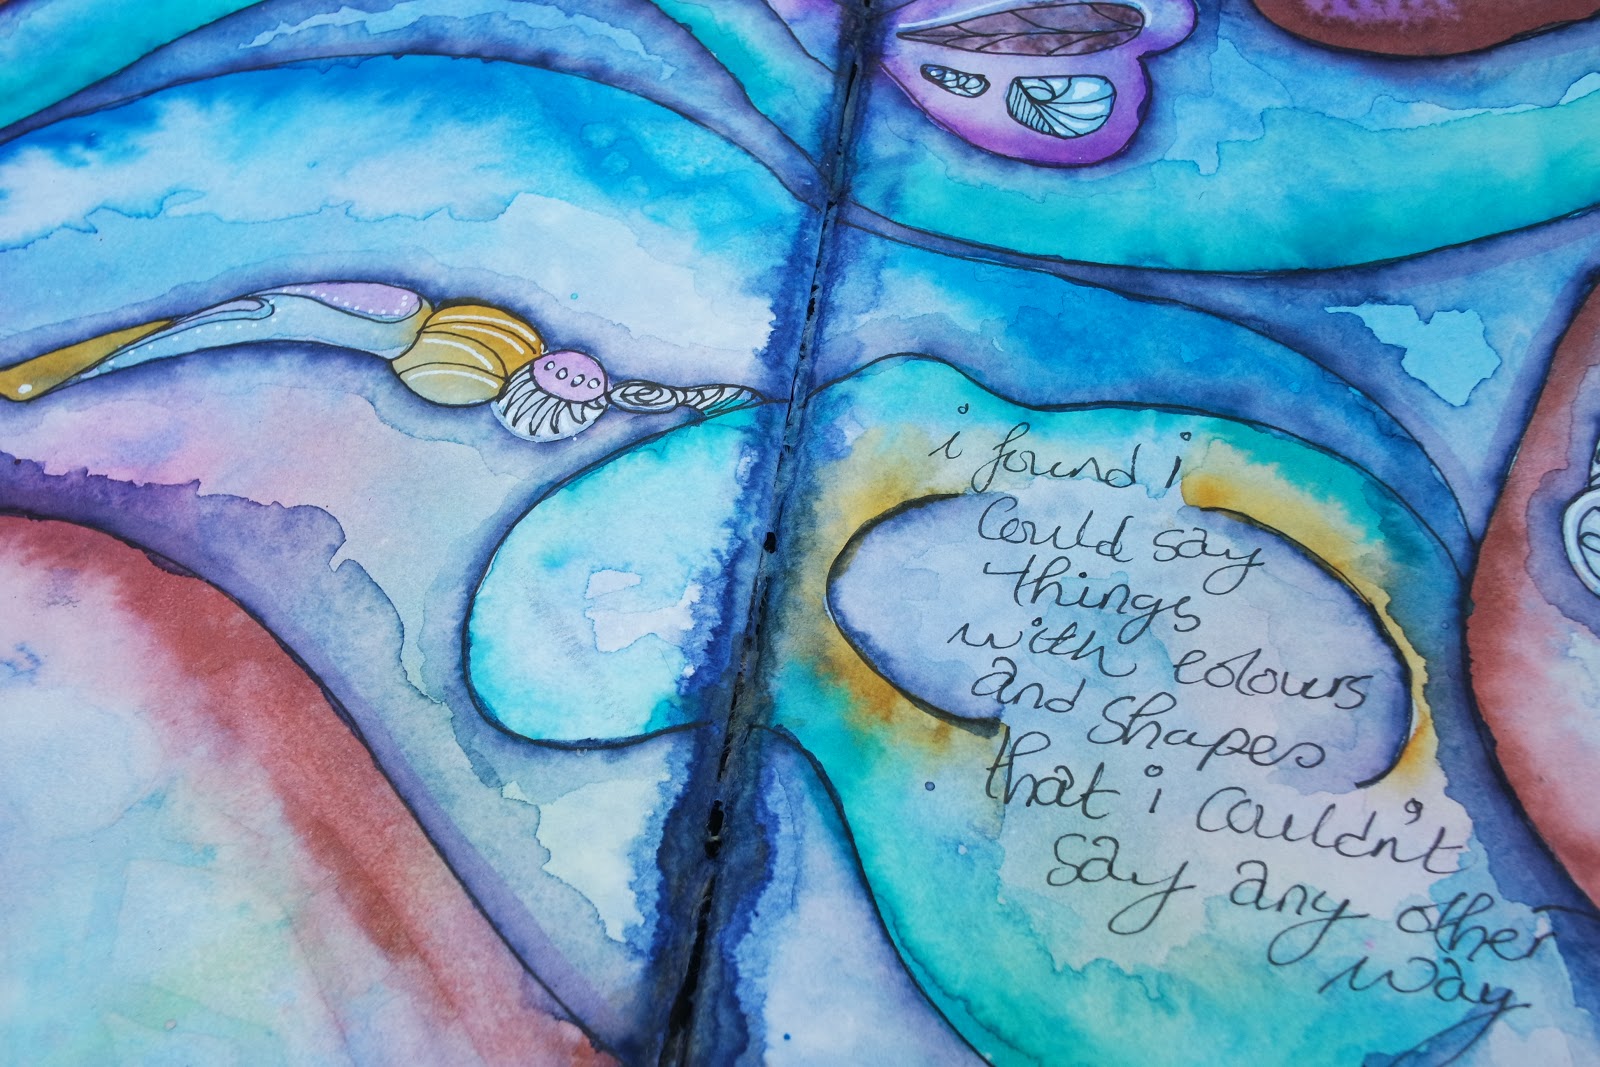 i found i
could say
things
with colours
and shapes
that i couldn't
say any other
way